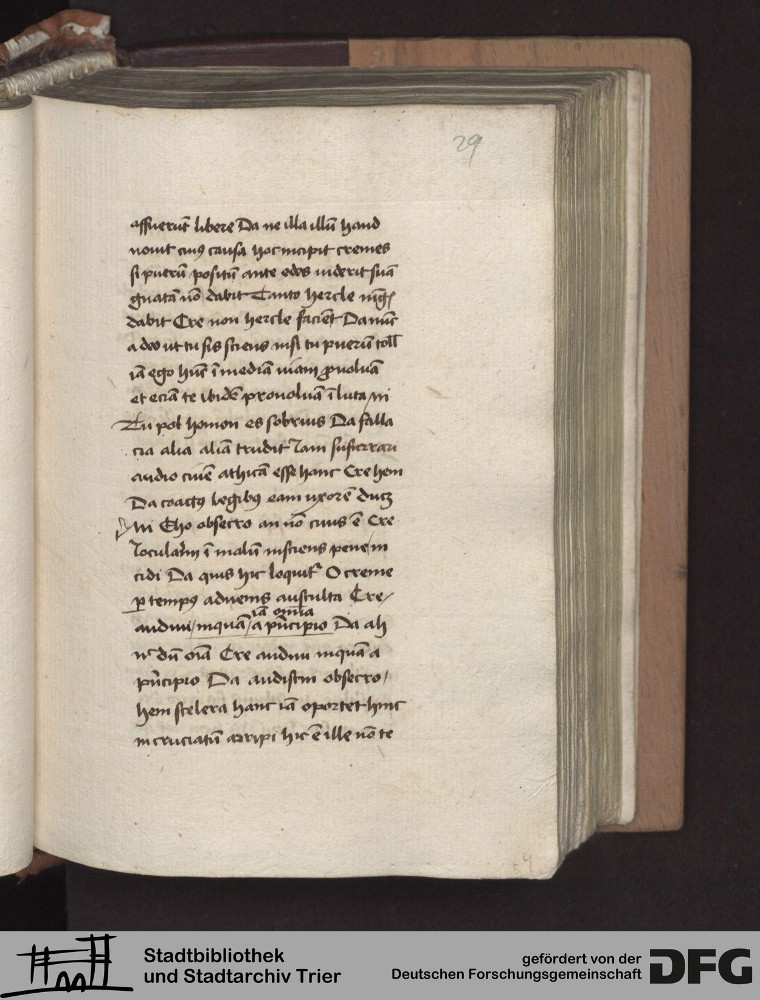 29
affuerūt libere Da ne illa illū haud
nouit cuiꝰ causa hoc incipit cremes
si puerū positū ante edes uiderit suā
gnatā nō dabit Tanto hercle mḡ
dabit Cre non hercle faciēt Da nūc
a deo ut tu sis sciens nisi tu puerū toll
iā ego hūc ī mediā uiam ꝓuoluā
et eciā te ibidē prouoluā ī luta / Mi
Tu pol homon es sobrius Da falla
cia alia aliā trudit Iam susurrari
audio ciuē athicā esse hanc Cre hem
Da coactꝰ legibꝰ eam uxorē ducꝫ
Mi Eho obsecro an nō ciuis ē Cre
Ioculariū ī malū insciens pene in
cidi Da quis hic loquitᷣ O creme
ꝑ tempꝰ aduenis ausculta Cre /
iā omīa
audiui / inquā / a pͥncipio Da ah
nᶜ dū oīa Cre audiui inquā a
pͥncipio Da audistin obsecro /
hem scelera hanc iā oportet hinc
in cruciatū arripi hic ē ille nō te
Stadtbibliothek
und Stadtarchiv Trier
gefördert von der
Deutschen Forschungsgemeinschaft
DFG